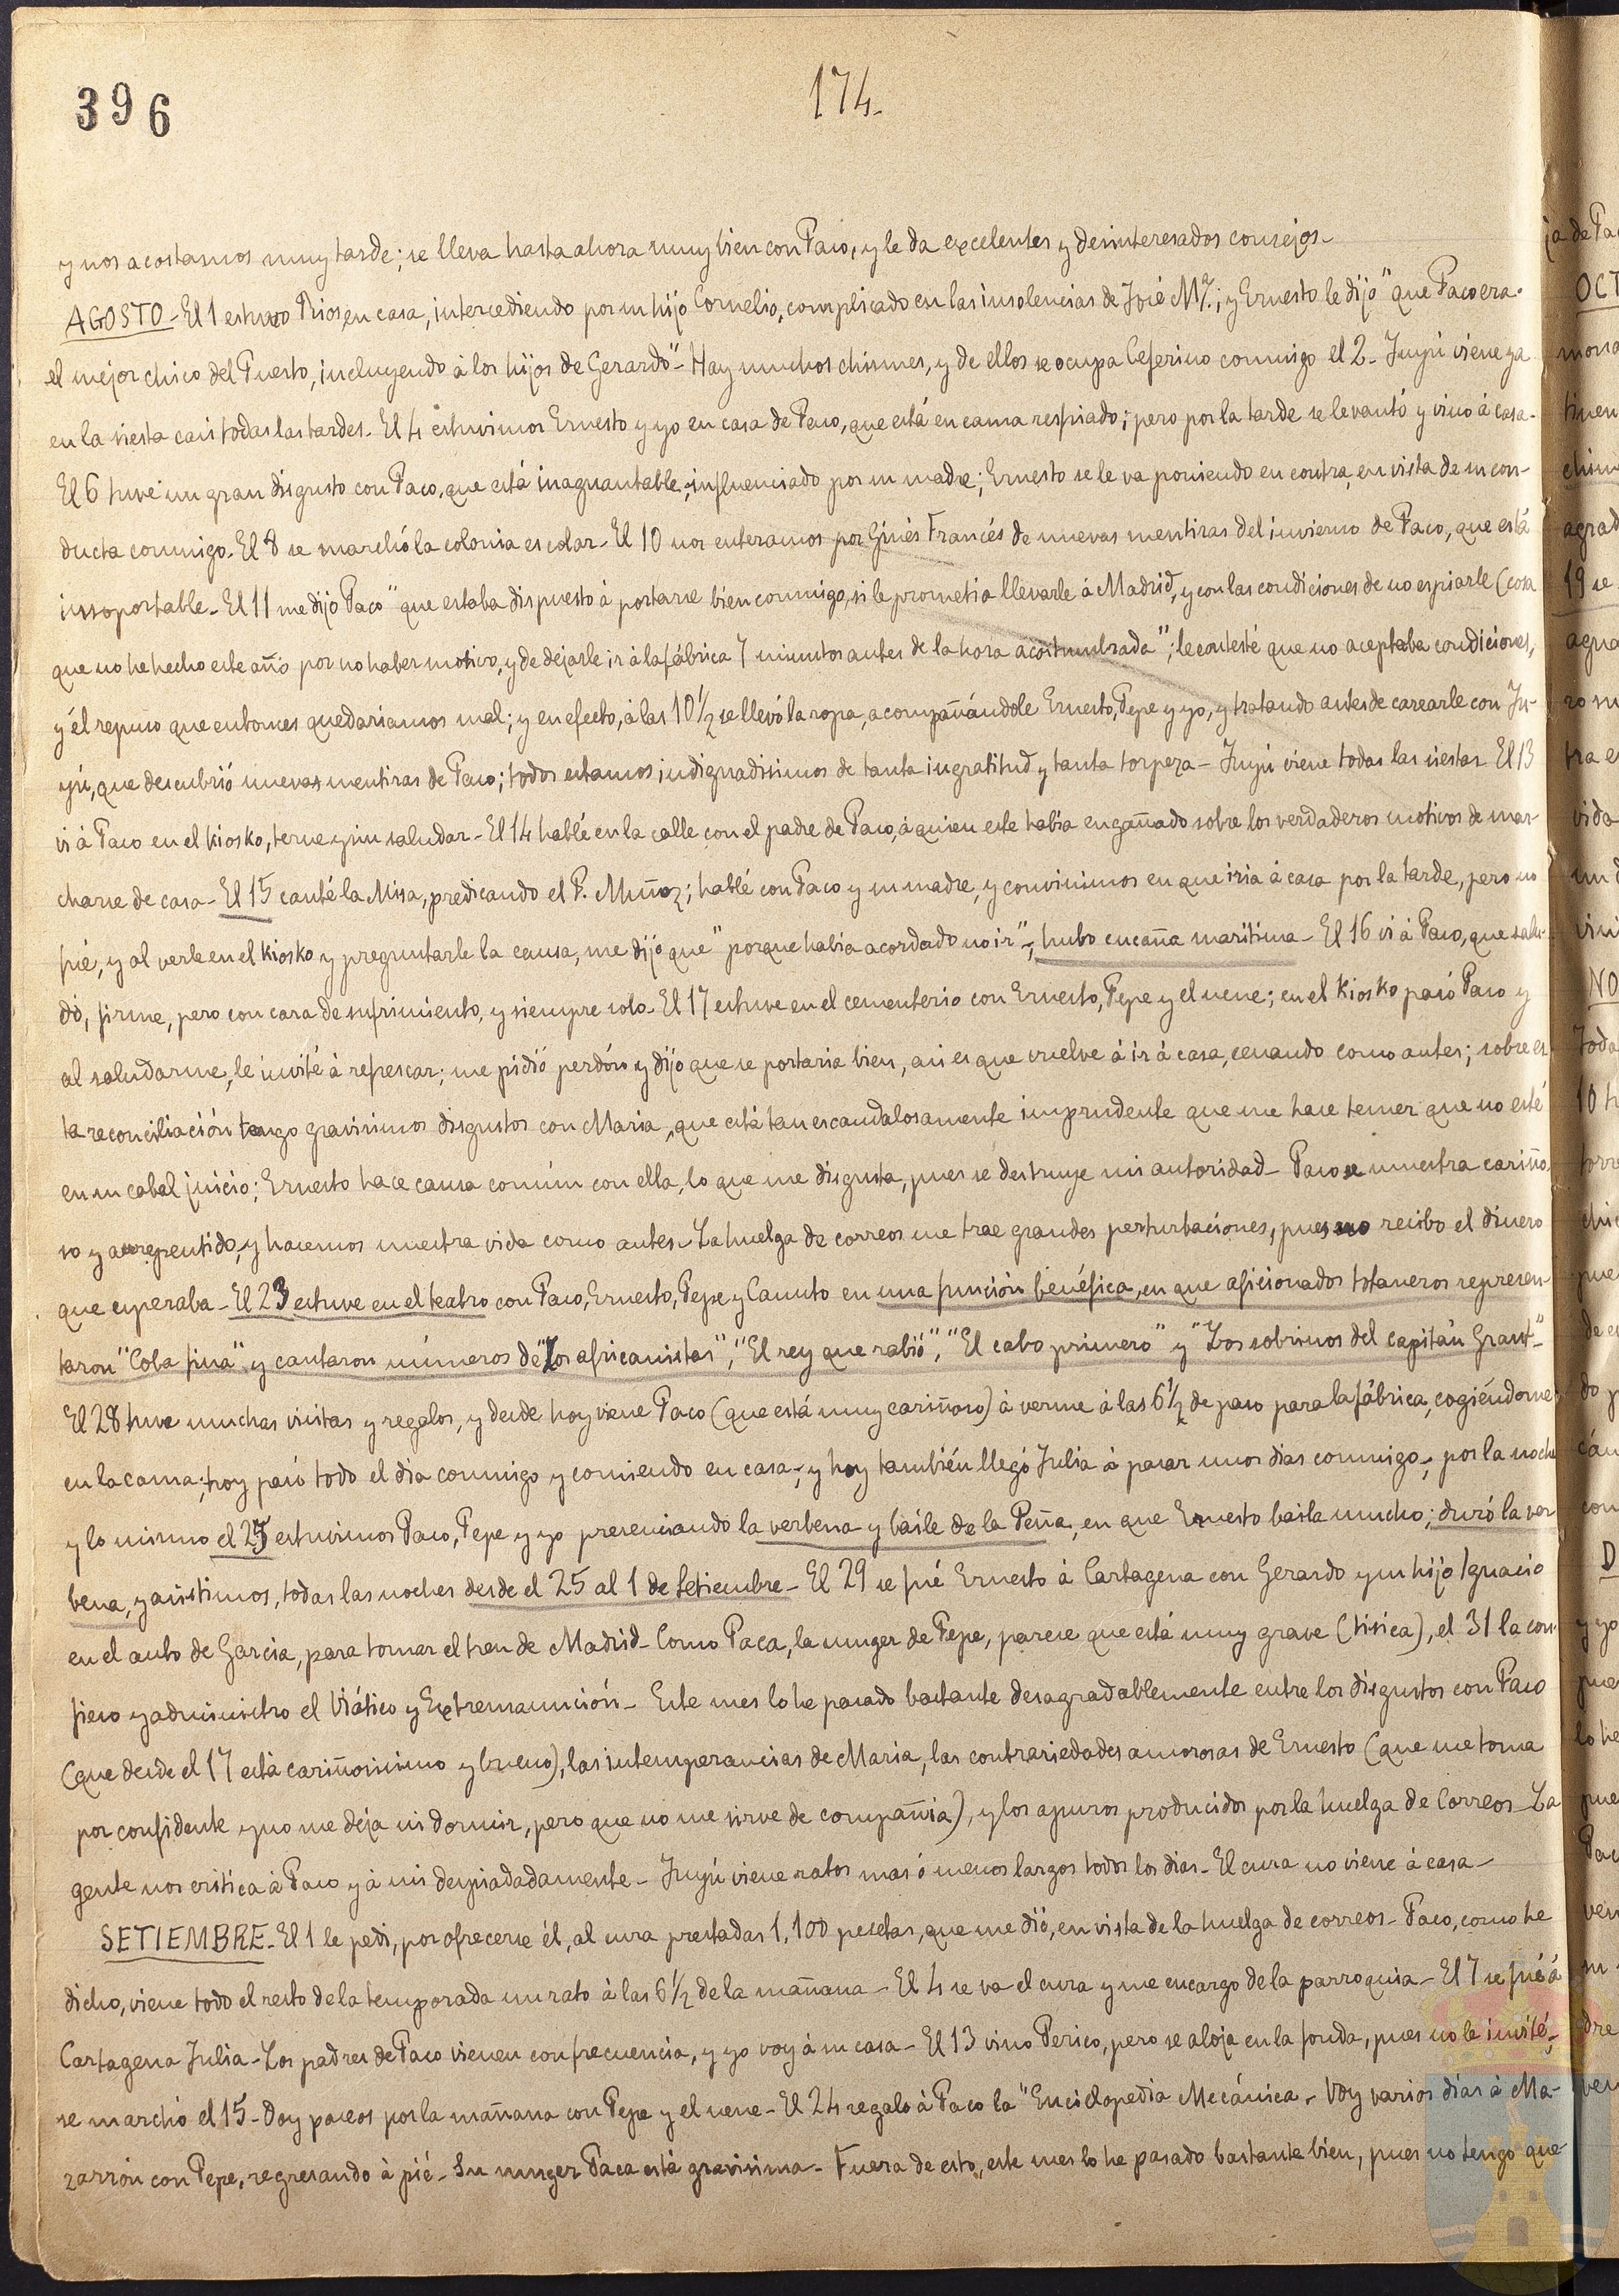 396
174.
y nos acostamos muy tarde; se lleva hasta ahora muy bien con Paco, y le da excelentes y desinteresados consejos.-
AGOSTO.- El 1 estuvo Rios en casa, intercediendo por su hijo Cornelio, complicado en las insolencias de José Mª.; y Ernesto le dijo "que Paco era
el mejor chico del Puerto, incluyendo à los hijos de Gerardo".- Hay muchos chismes, y de ellos se ocupa Ceferino conmigo el 2.- Juyú viene ya
en la siesta casi todas las tardes.- El 4 estuvimos Ernesto y yo en casa de Paco, que está en cama resfriado; pero por la tarde se levantó y vino á casa.-
El 6 tuve un gran disgusto con Paco, que está inaguantable, influenciado por su madre; Ernesto se le va poniendo en contra, en vista de su con-
ducta conmigo.- El 8 se marchó la colonia escolar.- El 10 nos enteramos por Ginés Francés de nuevas mentiras del invierno de Paco, que está
insoportable.- El 11 me dijo Paco "que estaba dispuesto à portarse bien conmigo, si le prometia llevarle á Madrid, y con las condiciones de no espiarle (cosa
que no he hecho este año por no haber motivo, y de dejarle ir à la fábrica 7 minutos antes de la hora acostumbrada"; le contesté que no aceptaba condiciones,
y él repuso que entonces quedariamos mal; y en efecto, à las 10½ se llevó la ropa, acompañándole Ernesto, Pepe y yo, y tratando antes de carearle con Ju-
yú, que descubrió nuevas mentiras de Paco; todos estamos indignadisimos de tanta ingratitud y tanta torpeza.- Juyú viene todas las siestas. El 13
vi à Paco en el kiosko, terne y sin saludar.- El 14 hablé en la calle con el padre de Paco, à quien este habia engañado sobre los verdaderos motivos de mar-
charse de casa.- El 15 canté la Misa, predicando el P. Muñoz; hablé con Paco y su madre, y convinimos en que iria à casa por la tarde, pero no
fué, y al verle en el kiosko y preguntarle la causa, me dijo que "porque habia acordado no ir"; hubo cucaña maritima.- El 16 vi à Paco, que salu-
dó, firme, pero con cara de sufrimiento, y siempre solo.- El 17 estuve en el cementerio con Ernesto, Pepe y el nene; en el kiosko pasó Paco y
al saludarme, le invité à refrescar; me pidió perdón y dijo que se portaria bien, asi es que vuelve à ir à casa, cenando como antes; sobre es
ta reconciliación tengo gravisimos disgustos con Maria, que está tan escandalosamente imprudente que me hace temer que no esté
en su cabal juicio; Ernesto hace causa común con ella, lo que me disgusta, pues se destruye mi autoridad.- Paco se muestra cariño-
so y arrepentido, y hacemos nuestra vida como antes.- La huelga de correos me trae grandes perturbaciones, pues no recibo el dinero
que esperaba.- El 23 estuve en el teatro con Paco, Ernesto, Pepe y Canuto en una función benéfica, en que aficionados totaneros represen-
taron "Coba fina" y cantaron números de "Los africanistas", "El rey que rabió", "El cabo primero" y "Los sobrinos del capitán Grant".-
El 28 tuve muchas visitas y regalos, y desde hoy viene Paco (que está muy cariñoso) à verme à las 6½ de paso para la fábrica, cogiéndome
en la cama; hoy pasó todo el dia conmigo y comiendo en casa; y hoy también llegó Julia à pasar unos dias conmigo; por la noche
y lo mismo el 25 estuvimos Paco, Pepe y yo presenciando la verbena y baile de la Peña, en que Ernesto baila mucho; duró la ver
bena, y asistimos, todas las noches desde el 25 al 1 de Setiembre.- El 29 se fué Ernesto à Cartagena con Gerardo y su hijo Ignacio
en el auto de Garcia, para tomar el tren de Madrid.- Como Paca, la muger de Pepe, parece que está muy grave (tisica), el 31 la con-
fieso y administro el Viático y Extremaunción.- Este mes lo he pasado bastante desagradablemente entre los disgustos con Paco
(que desde el 17 está cariñosisimo y bueno), las intemperancias de Maria, las contrariedades amorosas de Ernesto (que me toma
por confidente y no me deja ni dormir, pero que no me sirve de compañia), y los apuros producidos por la huelga de Correos.- La
gente nos critica à Paco y à mi despiadadamente.- Juyú viene ratos mas ó menos largos todos los dias.- El cura no viene à casa.-
SETIEMBRE.- El 1 le pedi, por ofrecerse él, al cura prestadas 1,100 pesetas, que me dió, en vista de la huelga de correos.- Paco, como he
dicho, viene todo el resto de la temporada un rato à las 6½ de la mañana.- El 4 se va el cura y me encargo de la parroquia.- El 7 se fué à
Cartagena Julia.- Los padres de Paco vienen con frecuencia, y yo voy à su casa.- El 13 vino Perico, pero se aloja en la fonda, pues no le invité;
se marchó el 15.- Doy paseos por la mañana con Pepe y el nene.- El 24 regalo à Paco la "Enciclopedia Mecánica.- Voy varios dias à Ma-
zarrón con Pepe, regresando à pié.- Su muger Paca está gravisima.- Fuera de esto, este mes lo he pasado bastante bien, pues no tengo que